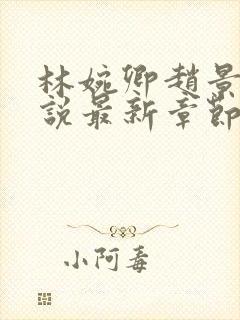 林婉卿趙景
說最新章節
小阿毒